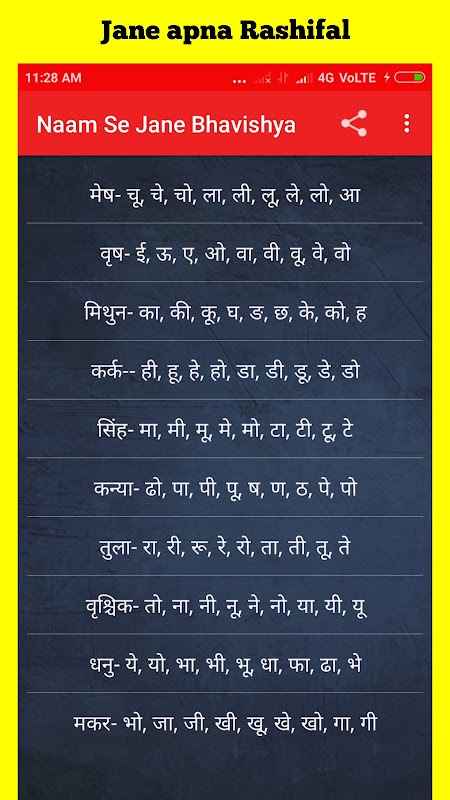 Jane apna Rashifal
11:28 AM ... 4G VoLTE
Naam Se Jane Bhavishya
मेष- चू, चे, चो, ला, ली, लू, ले, लो, आ
वृष- ई, ऊ, ए, ओ, वा, वी, वू, वे, वो
मिथुन- का, की, कू, घ, ङ, छ, के, को, ह
कर्क-- ही, हू, हे, हो, डा, डी, डू, डे, डो
सिंह- मा, मी, मू, मे, मो, टा, टी, टू, टे
कन्या- ढो, पा, पी, पू, ष, ण, ठ, पे, पो
तुला- रा, री, रू, रे, रो, ता, ती, तू, ते
वृश्चिक- तो, ना, नी, नू, ने, नो, या, यी, यू
धनु- ये, यो, भा, भी, भू, धा, फा, ढा, भे
मकर- भो, जा, जी, खी, खू, खे, खो, गा, गी